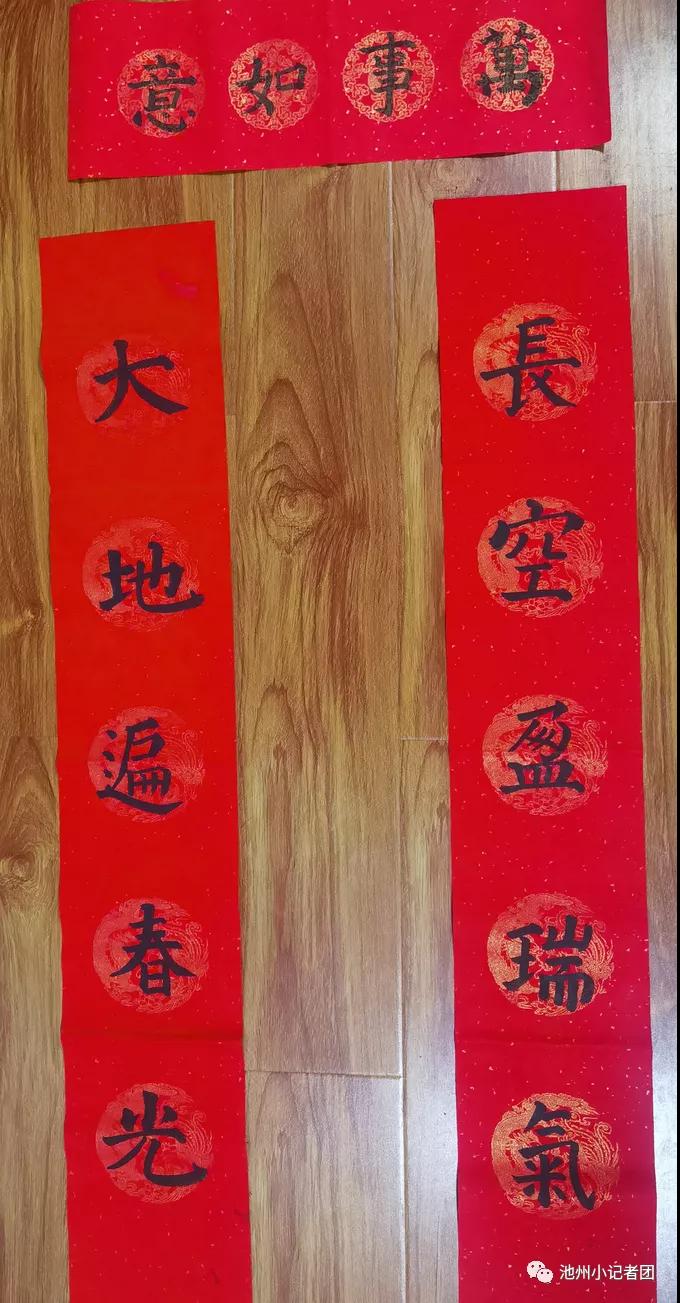 萬事如意
長空盈瑞氣
大地遍春光
池州小记者团